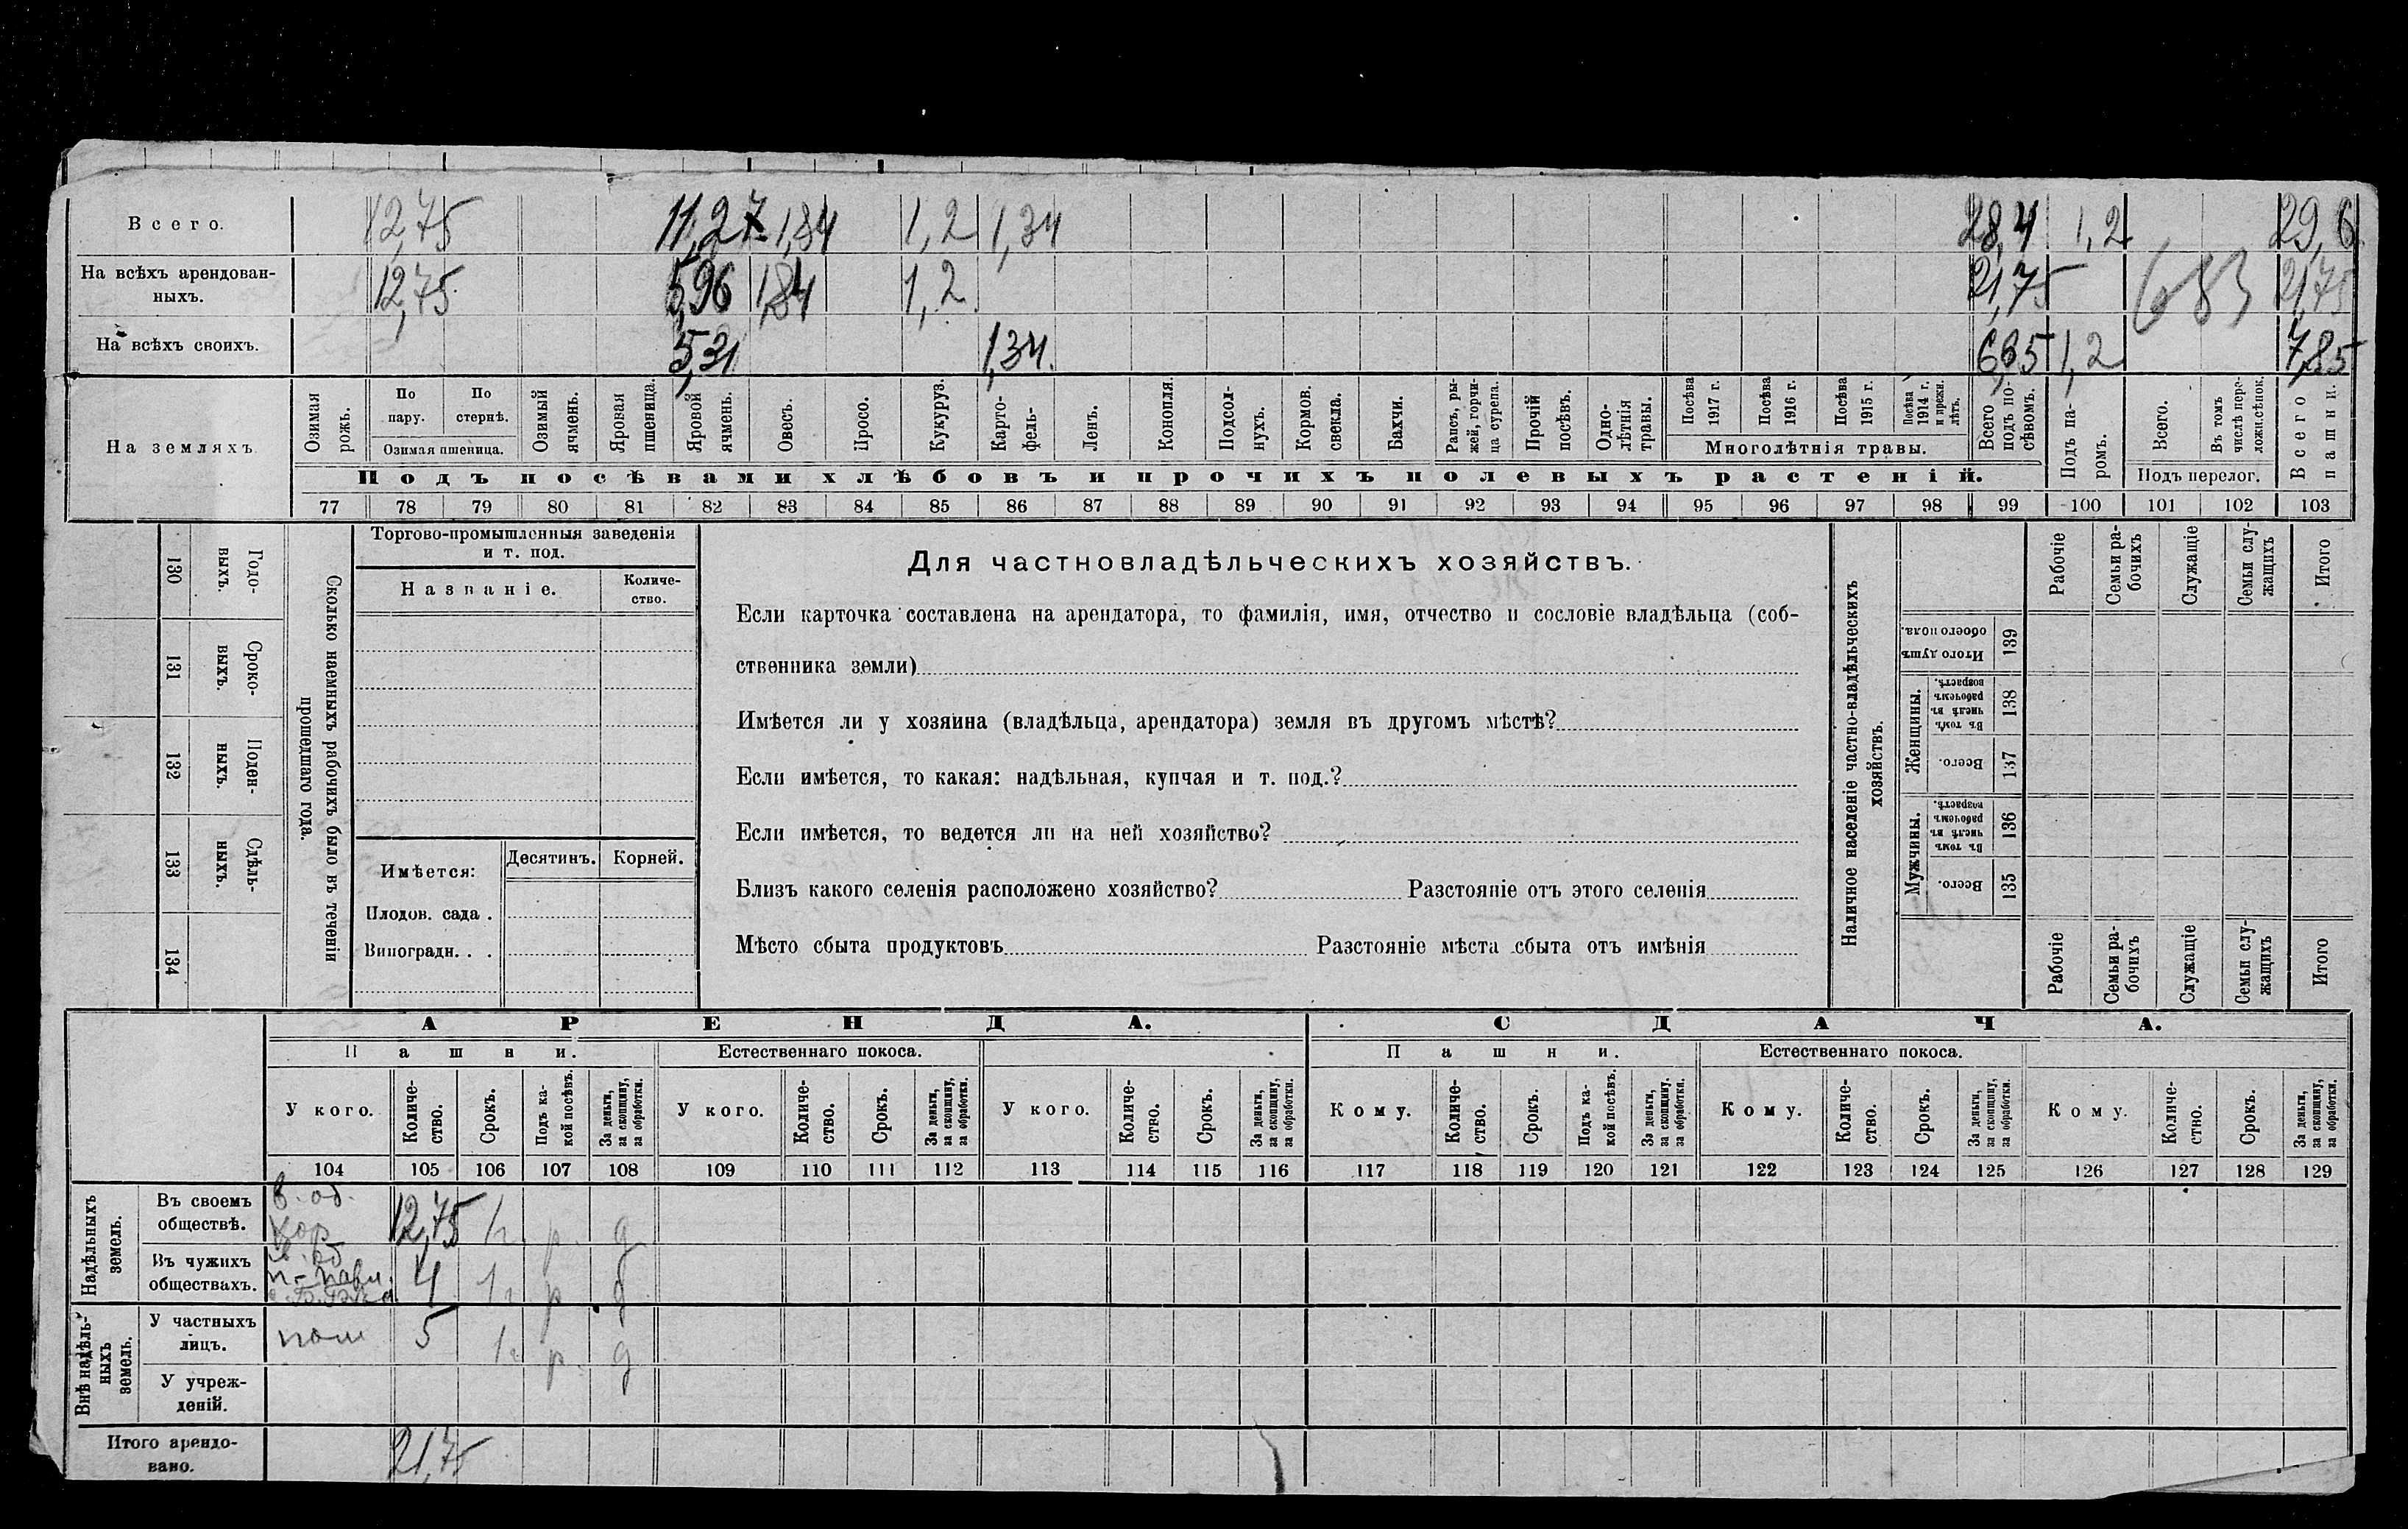 Всего. 12,75 11,27 1,84 1,2 1,34 28,4 1,2 29,6
На всѣхъ арендован-
ныхъ. 12,75 5,96 1,84 1,2 21,75 683 21,75
На всѣхъ своихъ. 5,31 1,34. 6,65 1,2 7,85
На земляхъ
Озимая рожь.
По пару.
По стернѣ.
Озимая пшеница.
Озимый ячмень.
Яровая пшеница.
Яровой ячмень.
Овесъ.
Просо.
Кукуруз.
Карто-
фель-
Ленъ.
Конопля.
Подсол-
нухъ.
Кормов. свекла.
Бахчи.
Рапсъ, ры-
жей, горчи-
ца сурепа.
Прочій посѣвъ.
Одно-
лѣтнія травы.
Посѣва 1917 г.
Посѣва 1916 г.
Посѣва 1915 г.
Посѣва 1914 г. и прежн. лѣтъ.
Многолѣтнія травы.
Всего подъ по-
сѣвомъ.
Подъ па-
ромъ.
Всего.
Въ томъ числѣ пере-
ложн.сѣнок.
Подъ перелог.
Всего пашни.
Подъ посѣвами хлѣбовъ и прочихъ полевыхъ растеній.
77 78 79 80 81 82 83 84 85 86 87 88 89 90 91 92 93 94 95 96 97 98 99 100 101 102 103
Годо-
выхъ.
130
Сроко-
выхъ.
131
Поден-
ныхъ.
132
Сдѣль-
ныхъ.
133
134
Сколько наемныхъ рабочихъ было въ теченіи
прошедшаго года.
Торгово-промышленныя заведенія
и т. под.
Названіе.
Количе-
ство.
Имѣется:
Десятинъ. Корней.
Плодов. сада .
Виноградн. . .
Для частновладѣльческихъ хозяйствъ.
Если карточка составлена на арендатора, то фамилія, имя, отчество и сословіе владѣльца (соб-
ственника земли)
Имѣется ли у хозяина (владѣльца, арендатора) земля въ другомъ мѣстѣ?
Если имѣется, то какая: надѣльная, купчая и т. под.?
Если имѣется, то ведется ли на ней хозяйство?
Близъ какого селенія расположено хозяйство? Разстояніе отъ этого селенія
Мѣсто сбыта продуктовъ Разстояніе мѣста сбыта отъ имѣнія
Наличное населеніе частно-владѣльческихъ
хозяйствъ.
Рабочіе
Семьи ра-
бочихъ
Служащіе
Семьи слу-
жащихъ
Итого
Итого душъ
обоего пола.
139
Женщины.
Въ томъ числѣ въ рабочемъ возрастѣ.
138
Всего.
137
Мужчины.
Въ томъ числѣ въ рабочемъ возрастѣ.
136
Всего.
135
Рабочіе
Семьи ра-
бочихъ
Служащіе
Семьи слу-
жащихъ
Итого
АРЕНДА. СДАЧА.
Пашни. Естественнаго покоса. Пашни. Естественнаго покоса.
У кого.
Количе-
ство.
Срокъ.
Подъ ка-
кой посѣвъ.
За деньги,
за скопщину,
за обработки.
У кого.
Количе-
ство.
Срокъ.
За деньги,
за скопщину,
за обработки.
У кого.
Количе-
ство.
Срокъ.
За деньги,
за скопщину,
за обработки.
Кому.
Количе-
ство.
Срокъ.
Подъ ка-
кой посѣвъ.
За деньги,
за скопщину.
за обработки.
Кому.
Количе-
ство.
Срокъ.
За деньги,
за скопщину,
за обработки.
Кому.
Количе-
ство.
Срокъ.
За деньги,
за скопщину,
за обработки.
104 105 106 107 108 109 110 111 112 113 114 115 116 117 118 119 120 121 122 123 124 125 126 127 128 129
Надѣльныхъ
земель.
Въ своемъ
обществѣ. 12,75 1г. р. д
Въ чужихъ
обществахъ. 4 1г р д
Внѣ надѣль-
ныхъ
земель.
У частныхъ
лицъ. пом 5 1г р. д
У учреж-
деній.
Итого арендо-
вано. 21,75